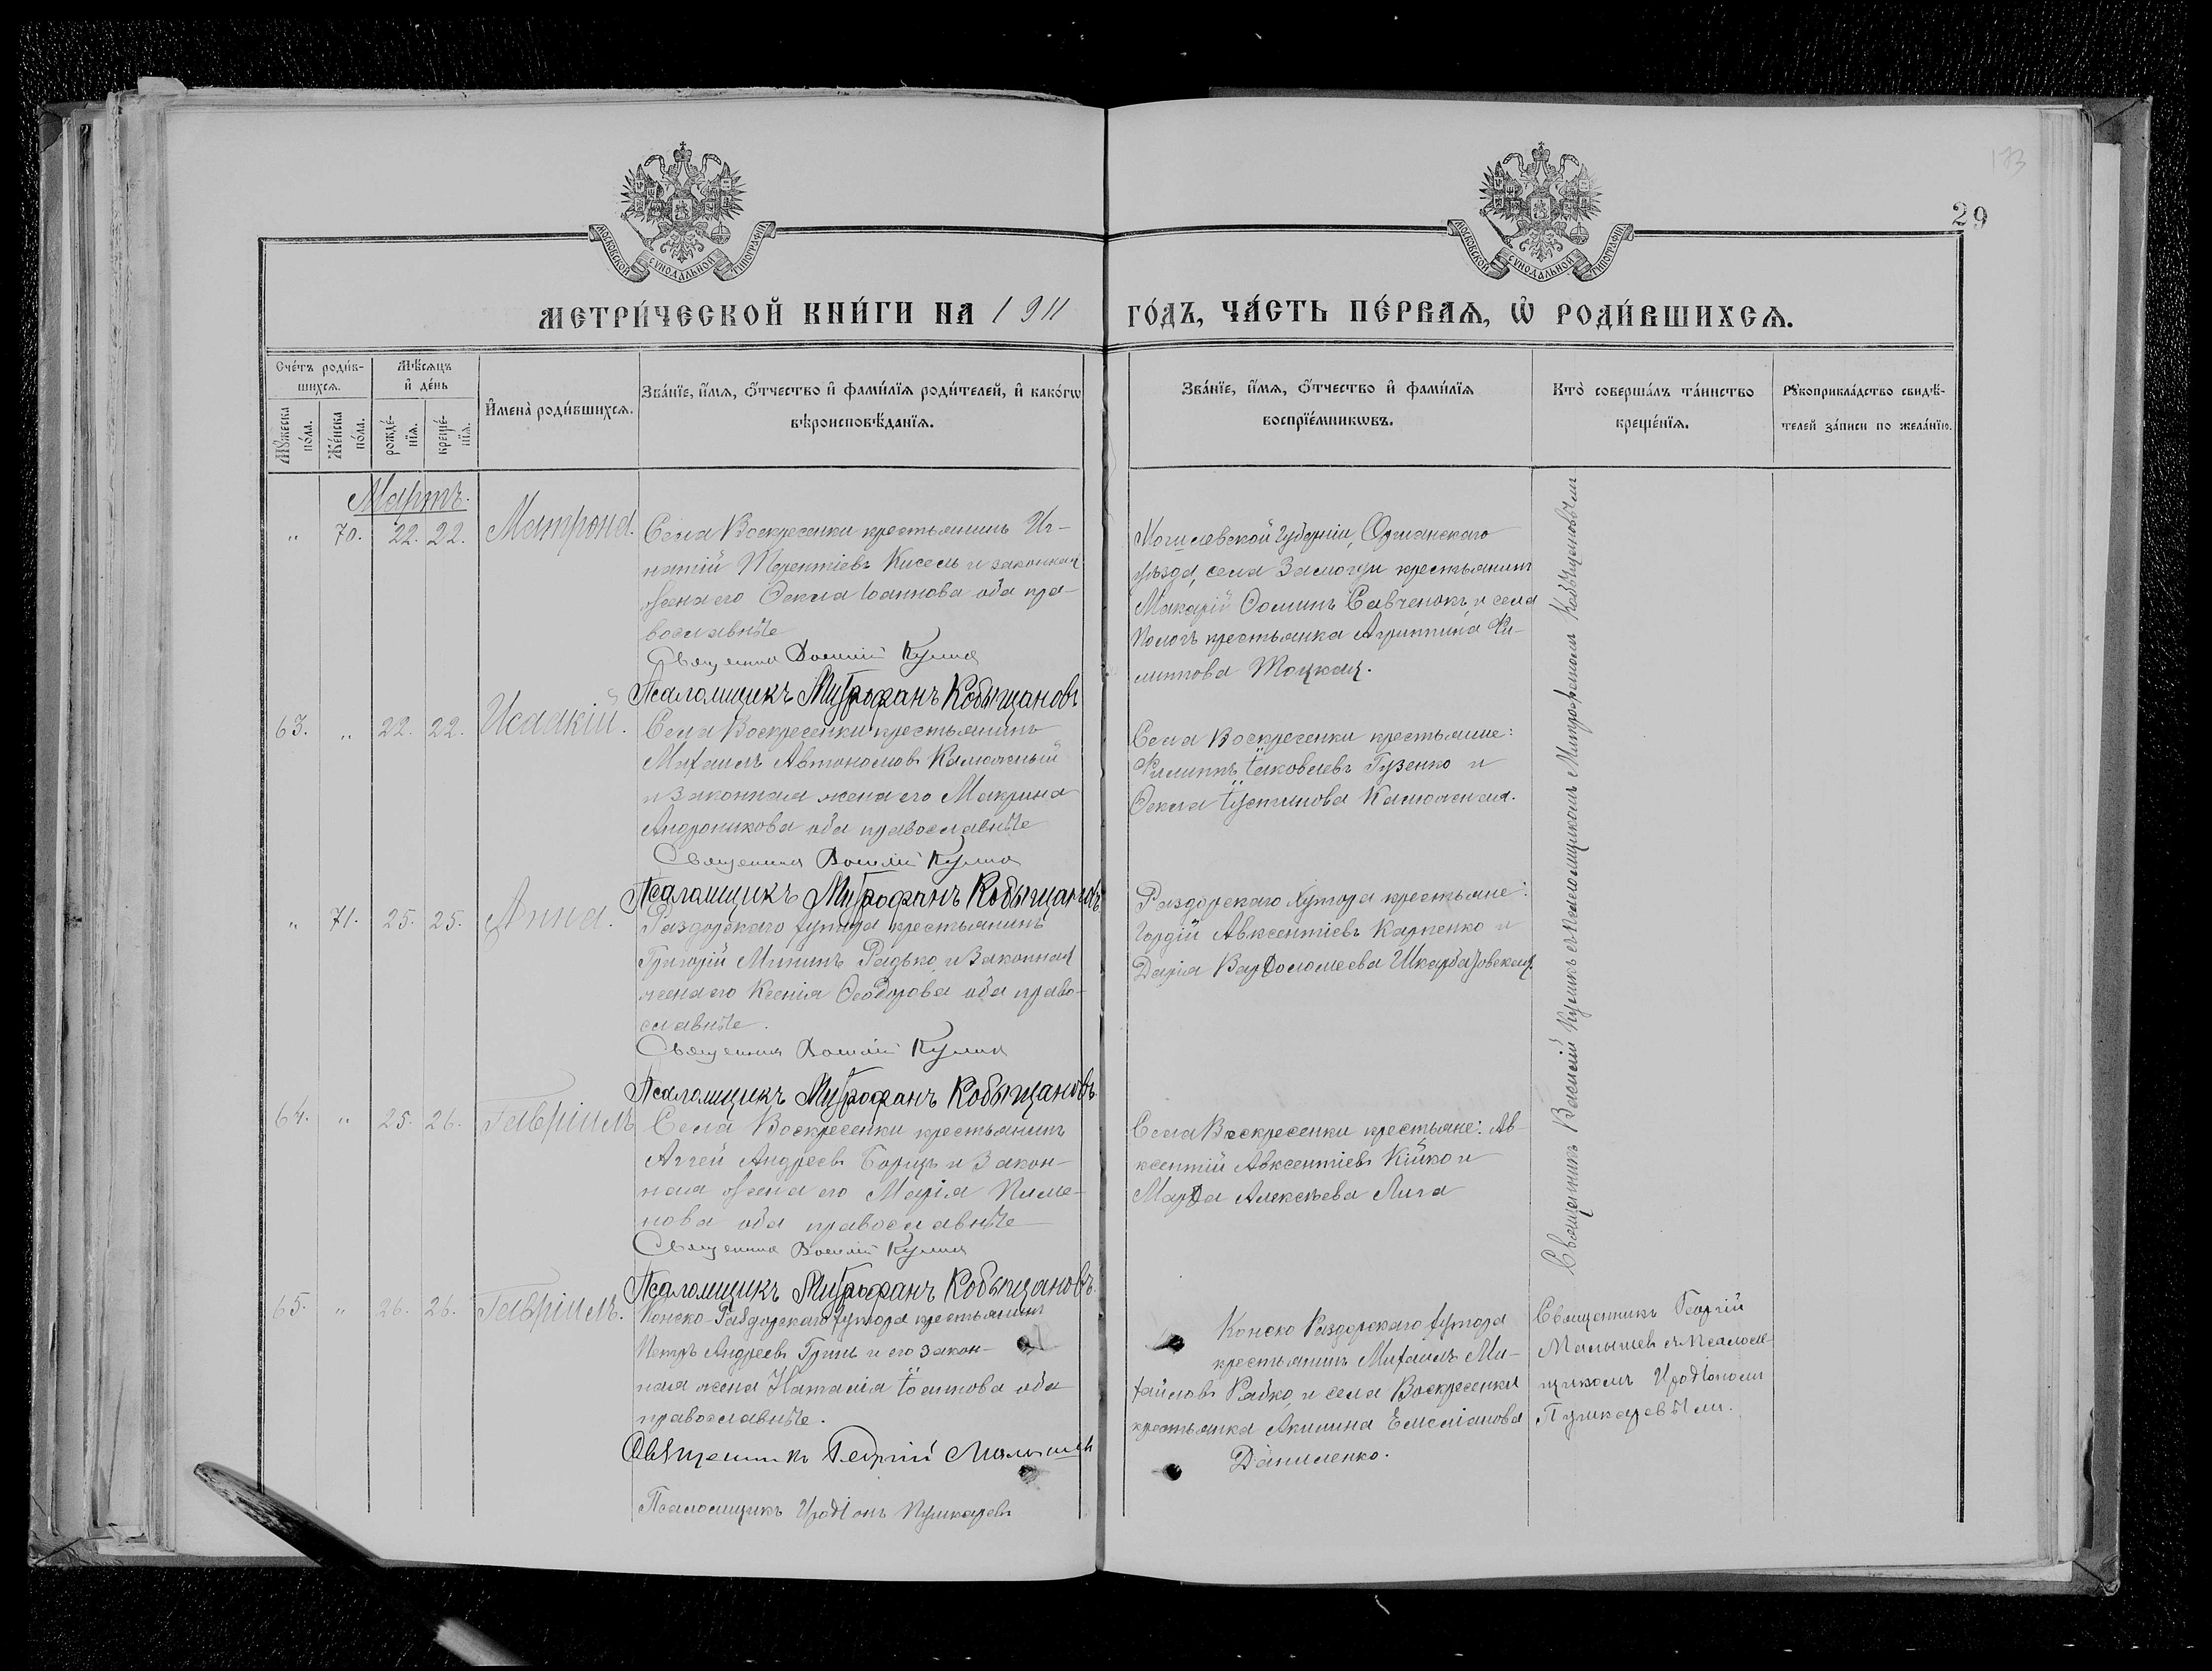 183
29
МОСКОВСКОЙ СѴНОДАЛЬНОЙ ТИПОГРАФІИ
МОСКОВСКОЙ СѴНОДАЛЬНОЙ ТИПОГРАФІИ
МЕТРИ́ЧЕСКОЙ КНИ́ГИ НА 1911 ГО́ДЪ, ЧА́СТЬ ПЕ́РВАѦ, Ѡ РОДИ́ВШИХСѦ.
Сче́тъ роди́вшихсѧ.
Мꙋ́жеска по́ла.
Же́нска по́ла.
Мѣ́сѧцъ и де́нь
рожде́нїѧ.
креще́нїѧ.
Имена̀ роди́вшихсѧ.
Зва́нїе, и́мѧ, ѻ҆́тчество и фами́лїѧ роди́телей, и како́гѡ
вѣроисповѣ́данїѧ.
Зва́нїе, и́мѧ, ѻ҆́тчество и фами́лїѧ
воспрїе́мникѡвъ.
Кто̀ соверша́лъ та́инство
креще́нїѧ.
Рꙋкоприкла́дство свидѣ́-
телей за́писи по жела́нїю.
Мартъ.
" 70. 22. 22. Матрона.
Села Воскресенки крестьянинъ Иг-
натій Терентіевъ Кисель и законная
жена его Ѳекла Іоаннова оба пра-
вославные
Священникъ Василій Куликъ
Псаломщикъ Митрофанъ Кобыщановъ
Могилевской губерніи, Оршанскаго
уѣзда, села крестьянинъ
Макарій Ѳоминъ Савченокъ и села
Пологъ крестьянка Агриппина Фи-
липпова Тоцкая.
63. " 22. 22. Исаакій.
Села Воскресенки крестьянинъ
Михаилъ Автономовъ Калюжный
и законная жена его Макрина
Андроникова оба православные
Священникъ Василій Куликъ
Псаломщикъ Митрофанъ Кобыщановъ
Села Воскресенки крестьяне:
Филиппъ Іаковлевъ Гузенко и
Ѳекла Іустинова Калюжная.
" 71. 25. 25. Анна.
Раздорскаго хутора крестьянинъ
Григорій Мининъ Радько и законная
жена его Ксенія Ѳеодорова оба право-
славные.
Священникъ Василій Куликъ
Псаломщикъ Митрофанъ Кобыщановъ
Раздорскаго хутора крестьяне:
Гордій Авксентіевъ Карпенко и
Дарія Варѳоломеева
64. " 25. 26. Гавріилъ
Села Воскресенки крестьянинъ
Аггей Андреевъ Борщъ и закон-
ная жена его Марія Пиме-
нова оба православные
Священникъ Василій Куликъ
Псаломщикъ Митрофанъ Кобыщановъ
Села Воскресенки крестьяне: Ав-
ксентій Авксентіевъ Кійко и
Марѳа Алексѣева Лига
Священникъ Василій Куликъ съ Псаломщикомъ Митрофаномъ Кобыщановымъ
65. " 26. 26. Гавріилъ.
Конско-Раздорскаго хутора крестьянинъ
Петръ Андреевъ Гринь и его закон-
ная жена Наталія Іоаннова оба
православные.
Священникъ Георгій Малышевъ
Псаломщикъ Иродіонъ Пушкаревъ
Конско Раздорскаго хутора
крестьянинъ Михаилъ Ми-
хаиловъ Рябко, и села Воскресенки
крестьянка Акилина Емеліанова
Даниленко.
Священникъ Георгій
Малышевъ съ Псалом-
щикомъ Иродіономъ
Пушкаревымъ.